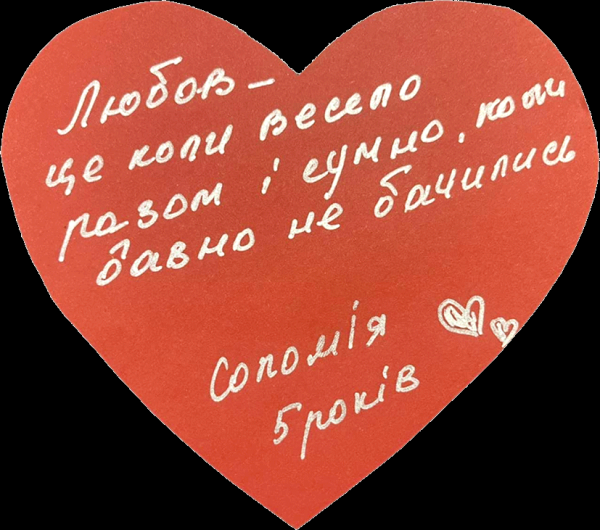 Любов –
це коли весело
разом і сумно, коли
давно не бачились
Соломія
5 років